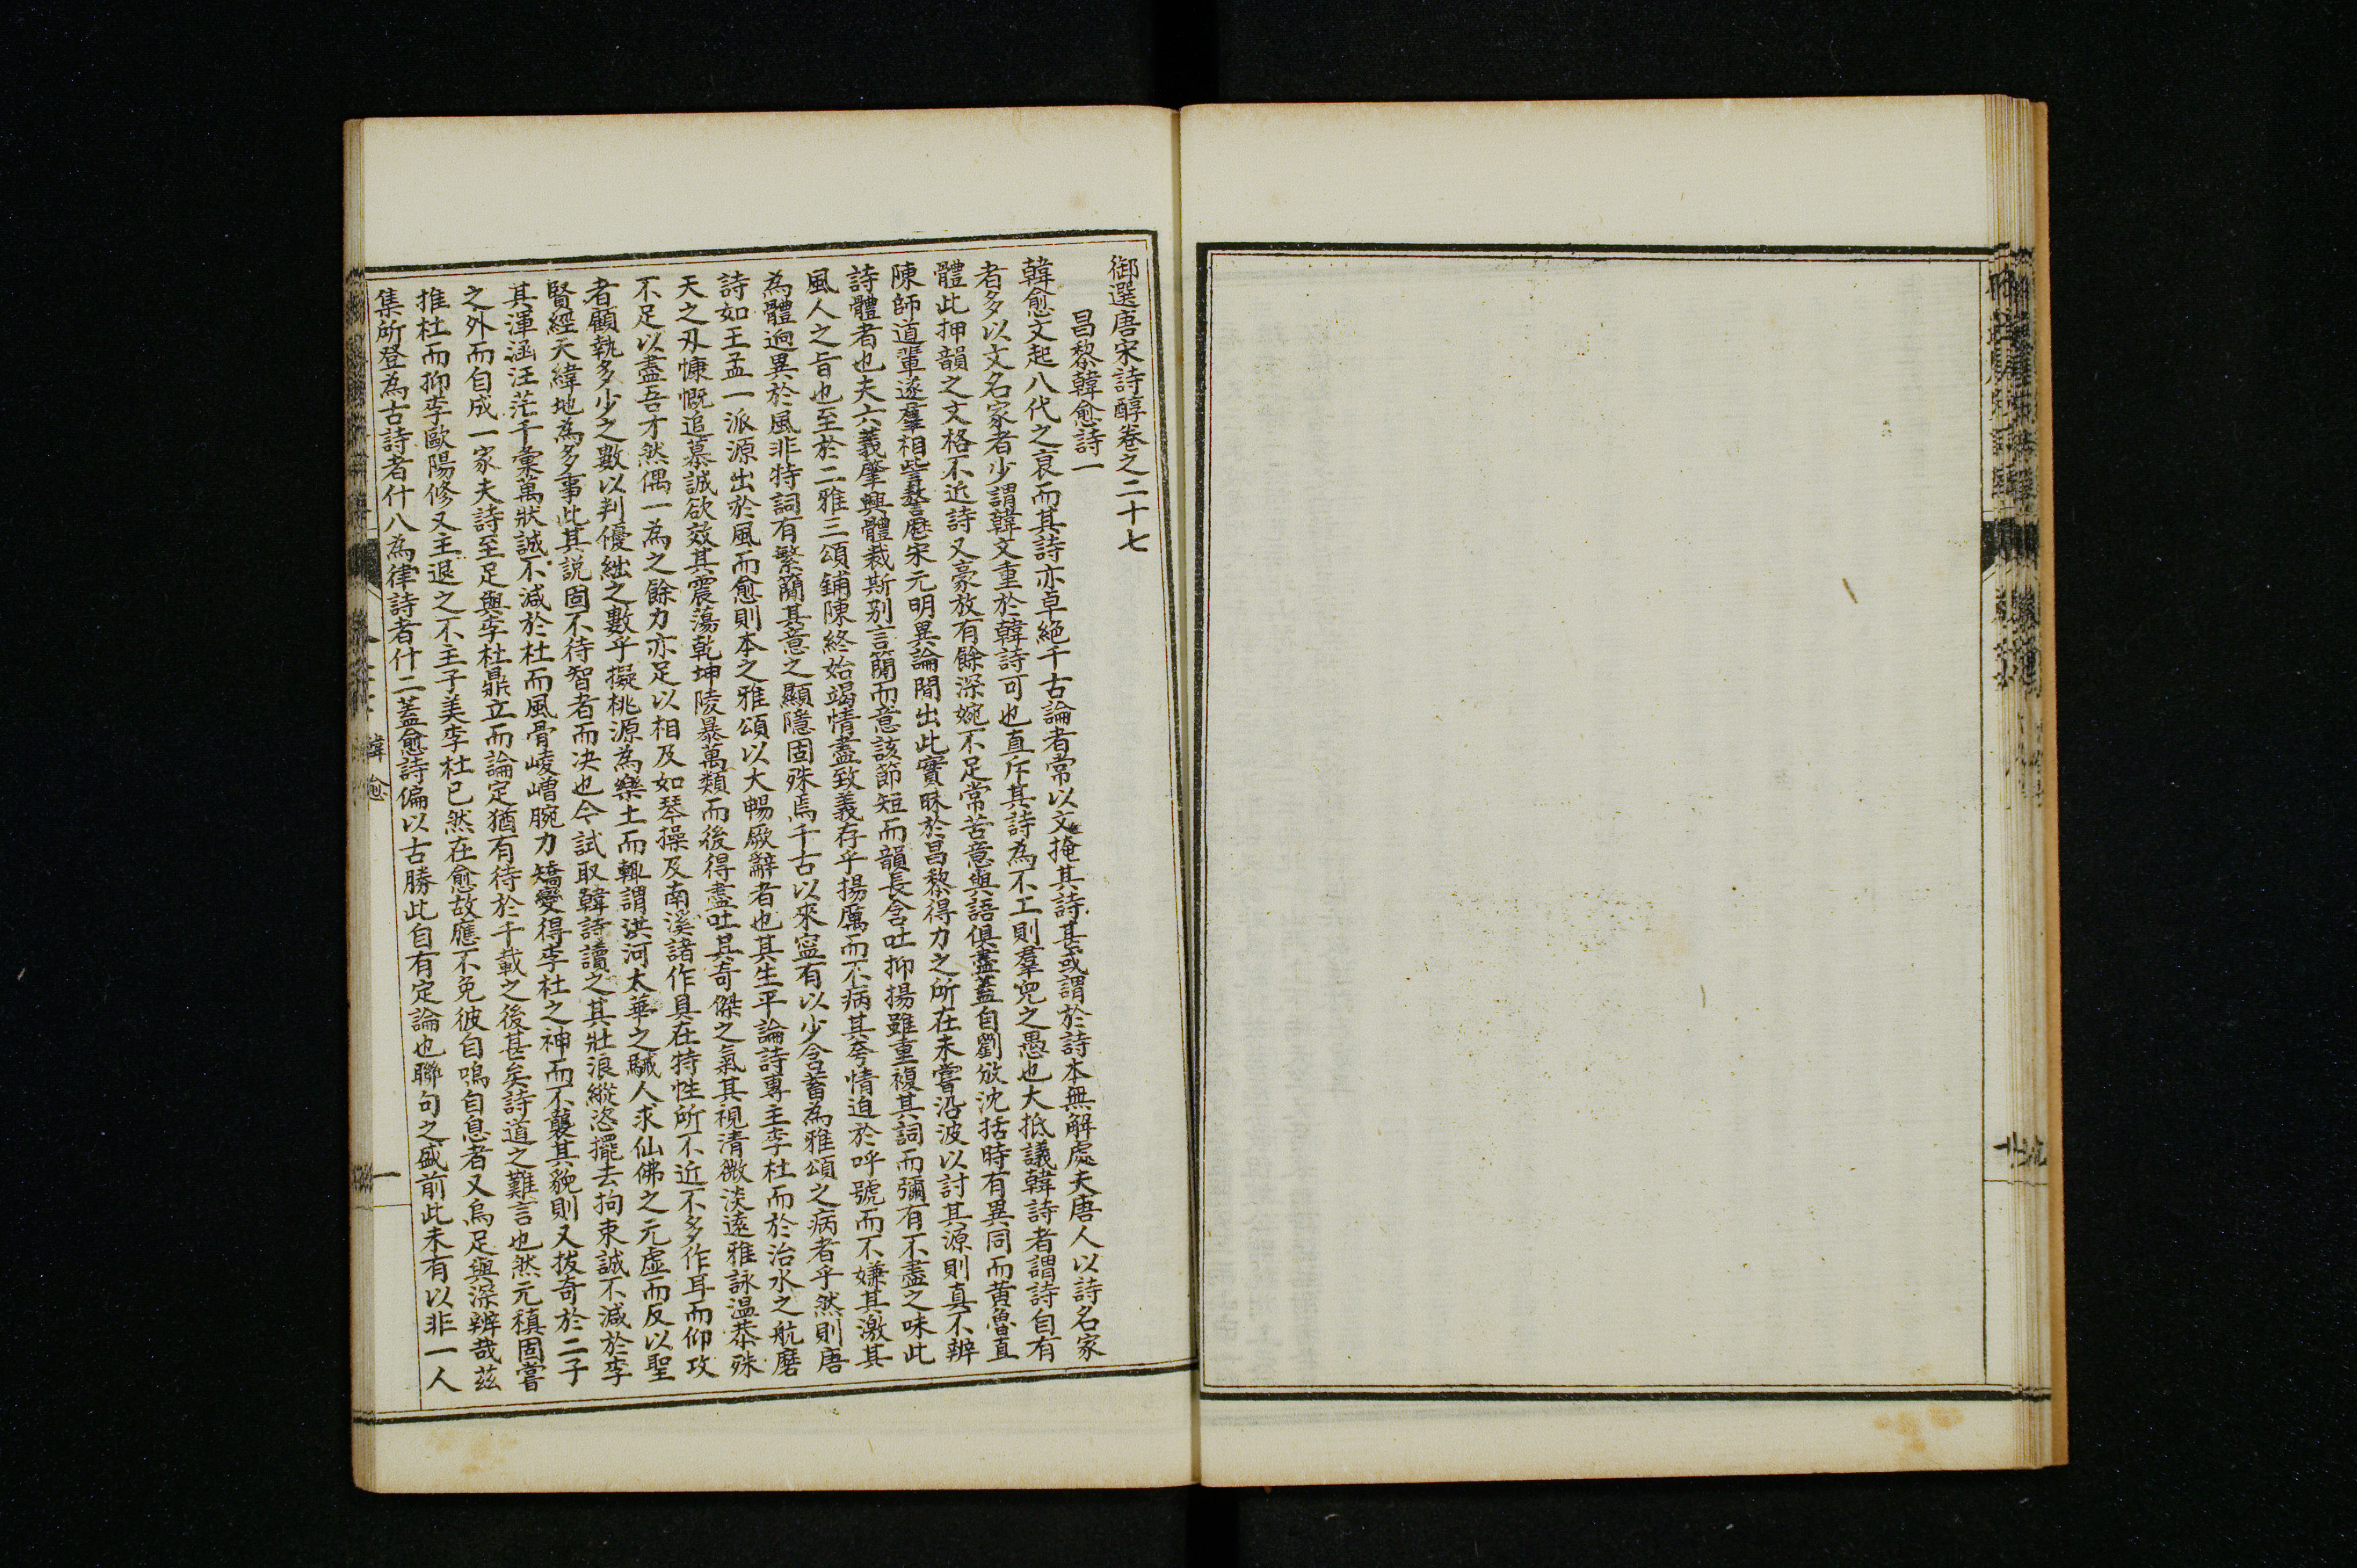 御選唐宋詩醇卷之二十七
昌黎韓愈詩一
韓愈文起八代之衰而其詩亦卓絶千古論者常以文掩其詩甚或謂於詩本無解處夫唐人以詩名家
者多以文名家者少謂韓文重於韓詩可也直斥其詩為不工則羣兒之愚也大抵議韓詩者謂詩自有
體此押韻之文格不近詩又豪放有餘深婉不足常苦意與語俱盡蓋自劉攽沈括時有異同而黃魯直
陳師道輩遂羣相訾謷歴宋元明異論間出此實昧於昌黎得力之所在未嘗沿波以討其源則真不辨
詩體者也夫六義肇興體裁斯别言簡而意該節短而韻長含吐抑揚雖重複其詞而彌有不盡之味此
風人之旨也至於二雅三頌鋪陳終始竭情盡致義存乎揚厲而不病其夸情迫於呼號而不嫌其激其
為體迥異於風非特詞有繁簡其意之顯隱固殊焉千古以來寧有以少含蓄為雅頌之病者乎然則唐
詩如王孟一派源出於風而愈則本之雅頌以大暢厥辭者也其生平論詩專主李杜而於治水之航磨
天之刃慷慨追慕誠欲效其震蕩乾坤陵暴萬類而後得盡吐其奇傑之氣其視清微淡遠雅詠溫恭殊
不足以盡吾才然偶一為之餘力亦足以相及如琴操及南溪諸作具在特性所不近不多作耳而仰攻
者顧執多少之數以判優絀之數乎擬桃源為樂土而輒謂洪河太華之駴人求仙佛之元虛而反以聖
賢經天緯地為多事此其説固不待智者而决也今試取韓詩讀之其壯浪縱恣擺去拘束誠不減於李
其渾涵汪茫千彚萬狀誠不減於杜而風骨崚嶒腕力矯變得李杜之神而不襲其貌則又拔奇於二子
之外而自成一家夫詩至足與李杜鼎立而論定猶有待於千載之後甚矣詩道之難言也然元稹固嘗
推杜而抑李歐陽修又主退之不主子美李杜已然在愈故應不免彼自鳴自息者又烏足與深辨哉茲
集所登為古詩者什八為律詩者什二蓋愈詩偏以古勝此自有定論也聯句之盛前此未有以非一人
韓愈
一